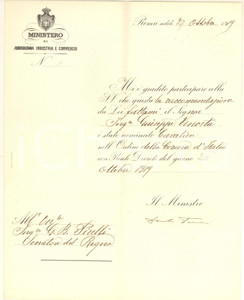 MINISTERO
DI
AGRICOLTURA INDUSTRIA E COMMERCIO
N.
Roma addì 27 Ottobre 1889
Mi è gradito partecipare alla
S.V. che giusta la raccomandazione
da Lei fattami il Signor
Ing.e Giuseppe
è stato nominato Cavaliere
nell'Ordine della Corona d'Italia
con Reale Decreto del giorno
Ottobre 1889
Il Ministro
All'
Ing.e G. B. Pirelli
Senatore del Regno